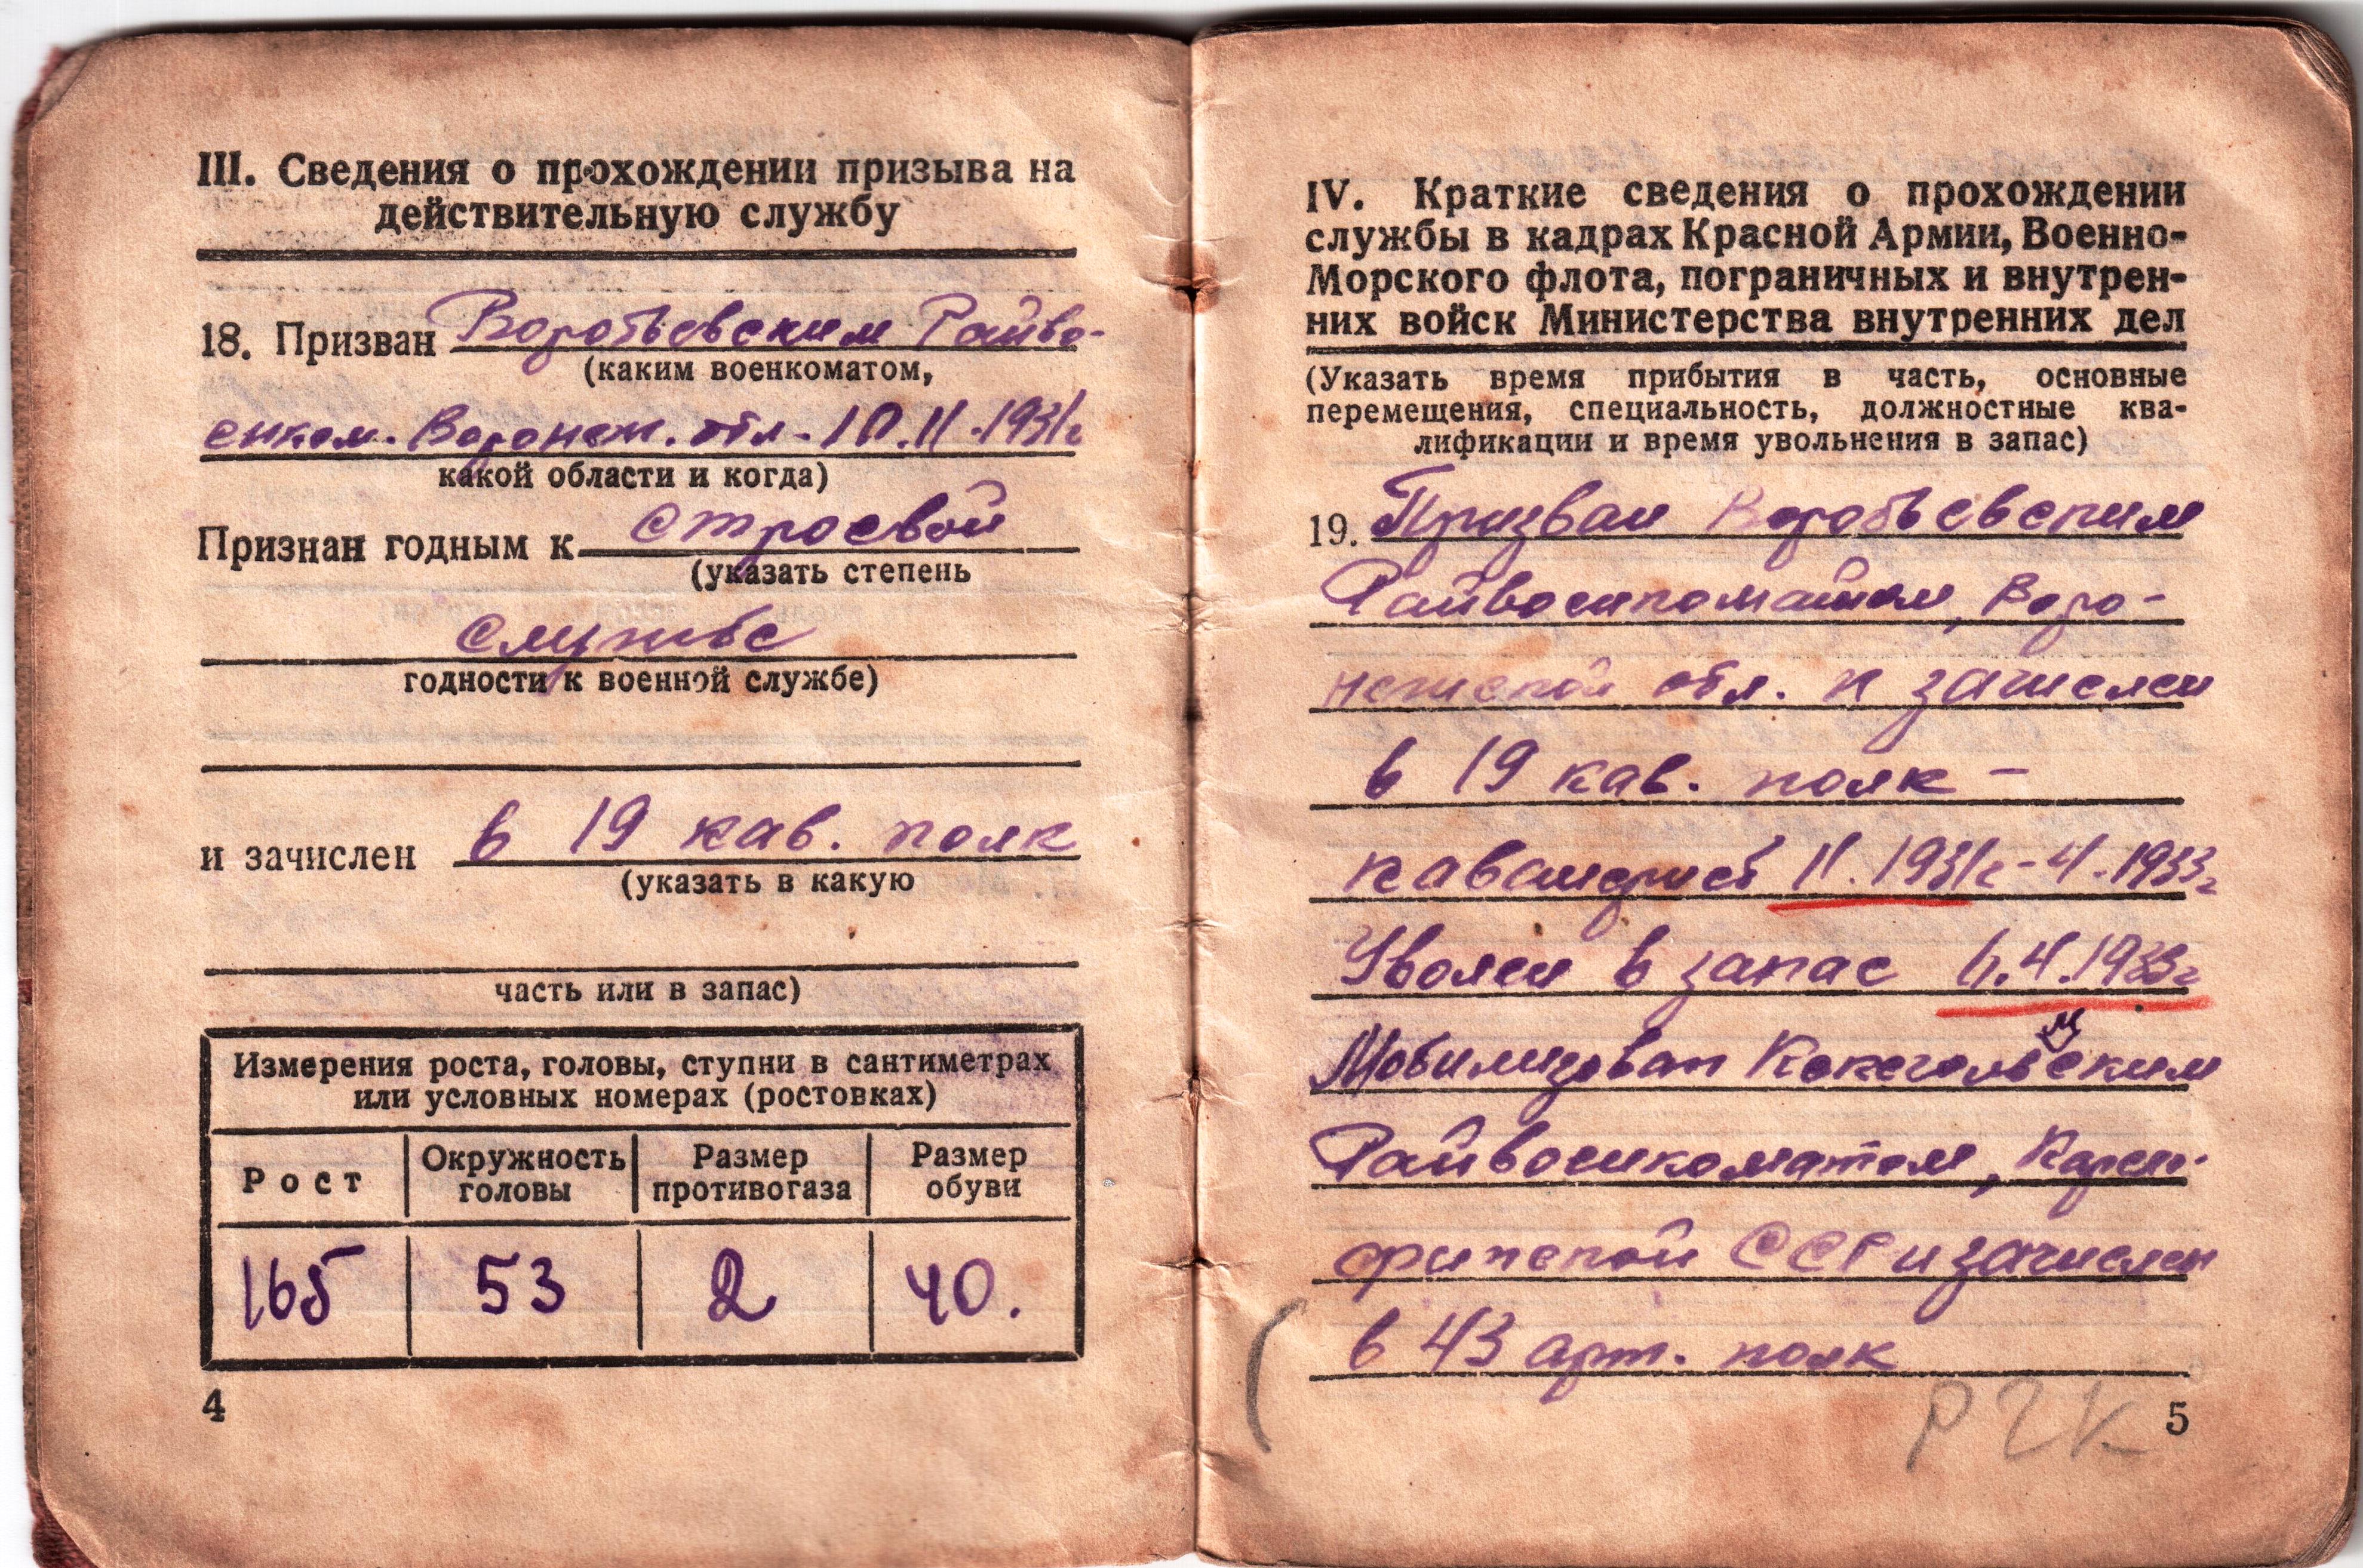 III. Сведения о прохождении призыва на
действительную службу
18. Призван Воробьевским Райво-
(каким военкоматом,
енком. Воронеж. обл. 10.11.1931г
какой области и когда)
Признан годным к строевой
(указать степень
службе
годности к военной службе)
и зачислен в 19 кав. полк
(указать в какую
часть или в запас)
Измерения роста, головы, ступни в сантиметрах
или условных номерах (ростовках)
Рост Окружность головы Размер противогаза Размер обуви
165 53 2 40.
4
IV. Краткие сведения о прохождении
службы в кадрах Красной Армии, Военно-
Морского флота, пограничных и внутрен-
них войск Министерства внутренних дел
(Указать время прибытия в часть, основные
перемещения, специальность, должностные ква-
лификации и время увольнения в запас)
19. Призван Воробьевским
Райвоенкоматом, Воро-
нежской обл. и зачислен
в 19 кав. полк -
кавалерист 11.1931г - 4.1933г
Уволен в запас 4.1933г
Мобилизован
Райвоенкоматом, Карел.
финской ССР и зачислен
в 43 арт. полк
РГК
5